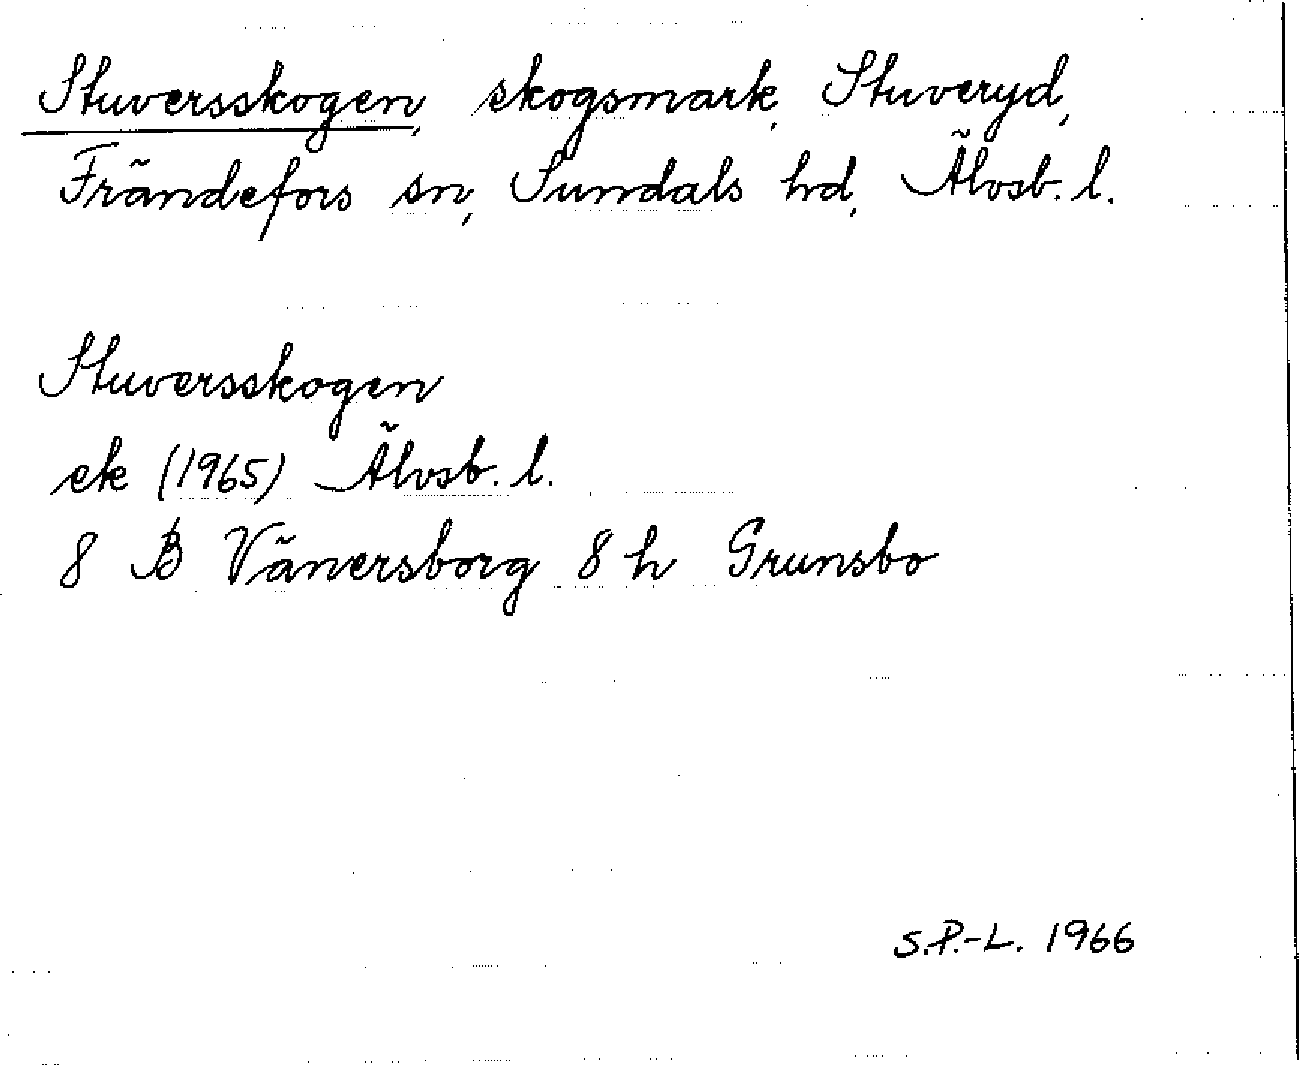 Stuversskogen, skogsmark, Stuveryd,
Frändefors sn, Sundals hd, Älvsb. l.
Stuversskogen
ek (1965) Älvsb. l.
8 B Vänersborg 8 h Grunsbo
S.P.-L. 1966